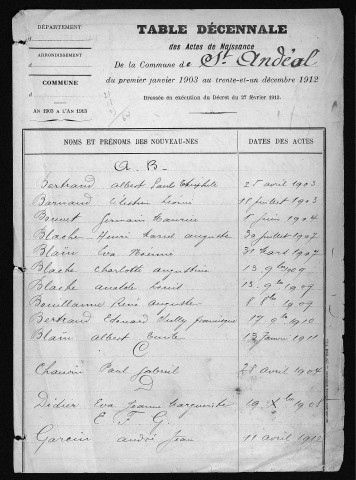 DÉPARTEMENT
ARRONDISSEMENT
COMMUNE
AN 1903 A L'AN 1913
TABLE DÉCENNALE
des Actes de Naissance
De la Commune de St Andéol
du premier janvier 1903 au trente-et-un décembre 1912
Dressée en exécution du Décret du 27 février 1912.
NOMS ET PRÉNOMS DES NOUVEAU-NÉS DATES DES ACTES
A. B.
Bertrand Albert Paul Théophile 25 avril 1903
Barnaud Célestin 18 juillet 1903
Bonnet Germain Maurice 8 juin 1904
Blache Henri Marcel auguste 30 juillet 1907
Blain Eva Noémie 31 Mars 1907
Blache Charlotte augustine 13 9bre 1909
Blache anatole Louis 13 9bre 1909
Bouillanne René Auguste 8 8bre 1909
Bertrand Edouard Jully 17 9bre 1910
Blain Albert Emile 13 Janvier 1911
C
Chauvin Paul Gabriel 28 avril 1904
D
Didier Eva Jeanne Marguerite 19 Xbre 1908
E. F. G.
Garcin André Jean 11 avril 1912